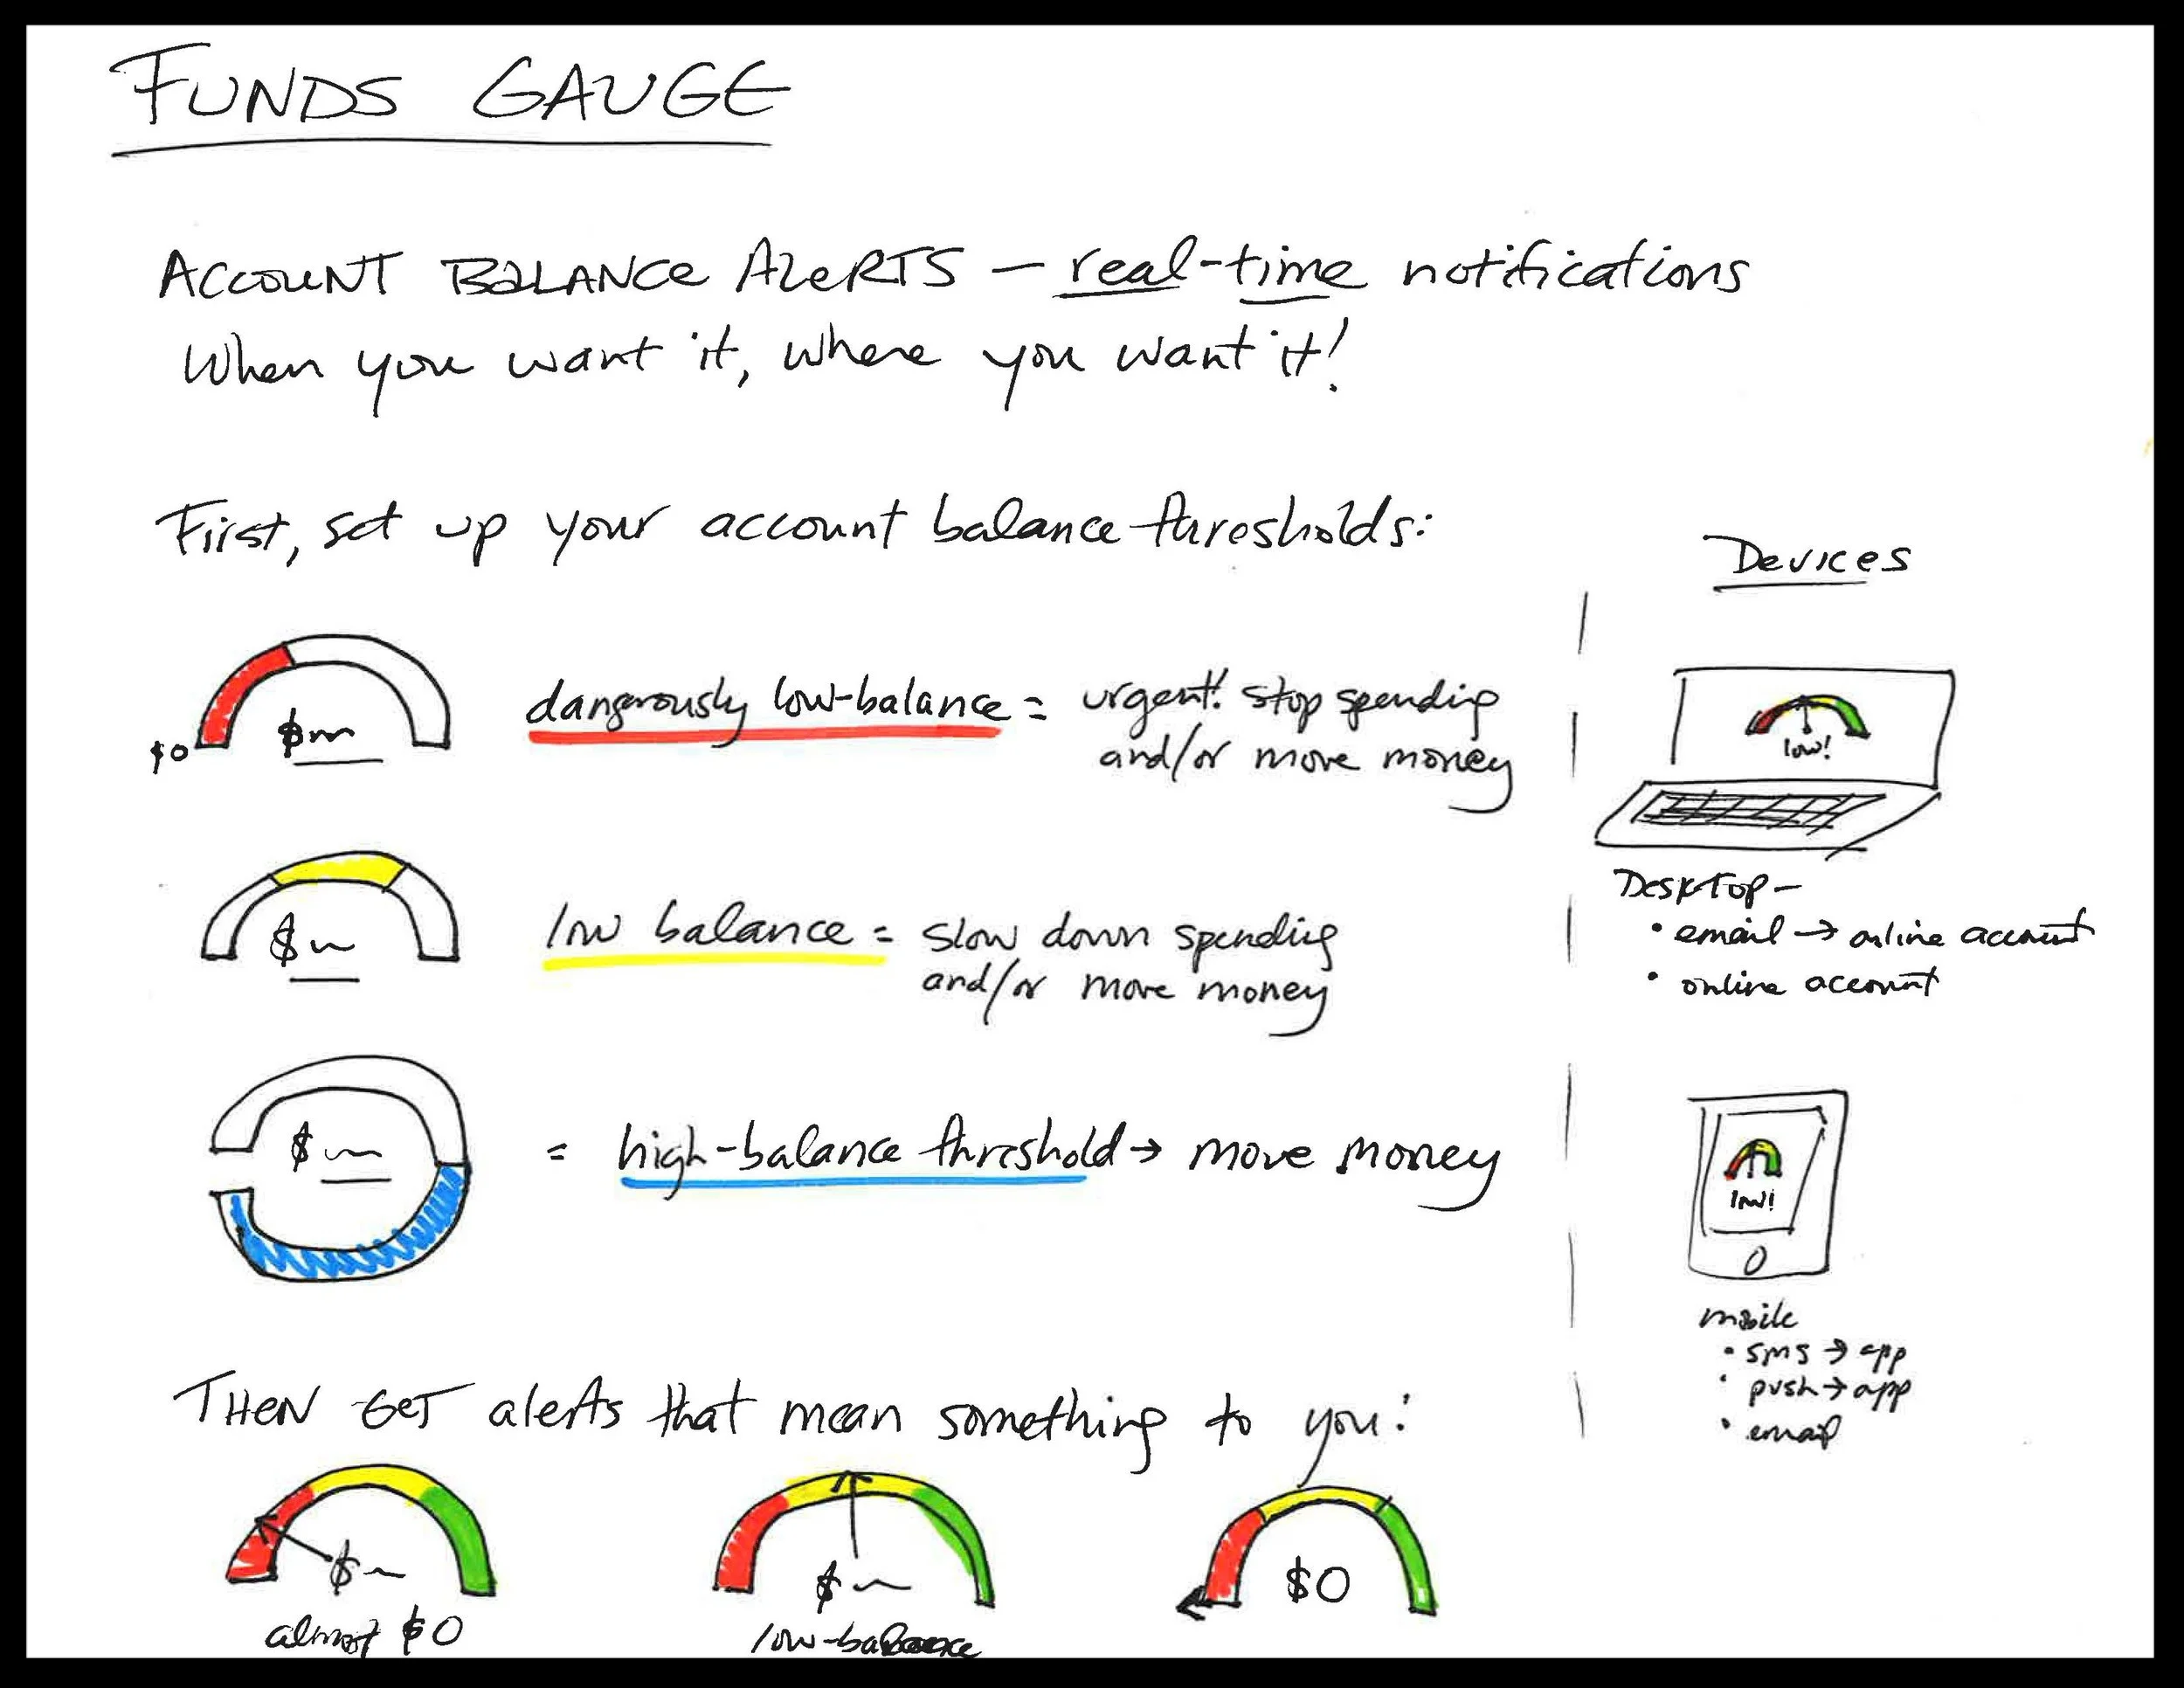 FUNDS GAUGE
ACCOUNT BALANCE ALERTS – real-time notifications
When you want it, where you want it!
First, set up your account balance thresholds:
$0
$
dangerously low-balance = urgent! stop spending
and/or move money
$
low balance = slow down spending
and/or move money
$
= high-balance threshold → move money
Devices
low!
DESKTOP –
• email → online account
• online account
low!
mobile
• sms → app
• push → app
• email
THEN GET alerts that mean something to you:
$
almost $0
$
low-balance
$0